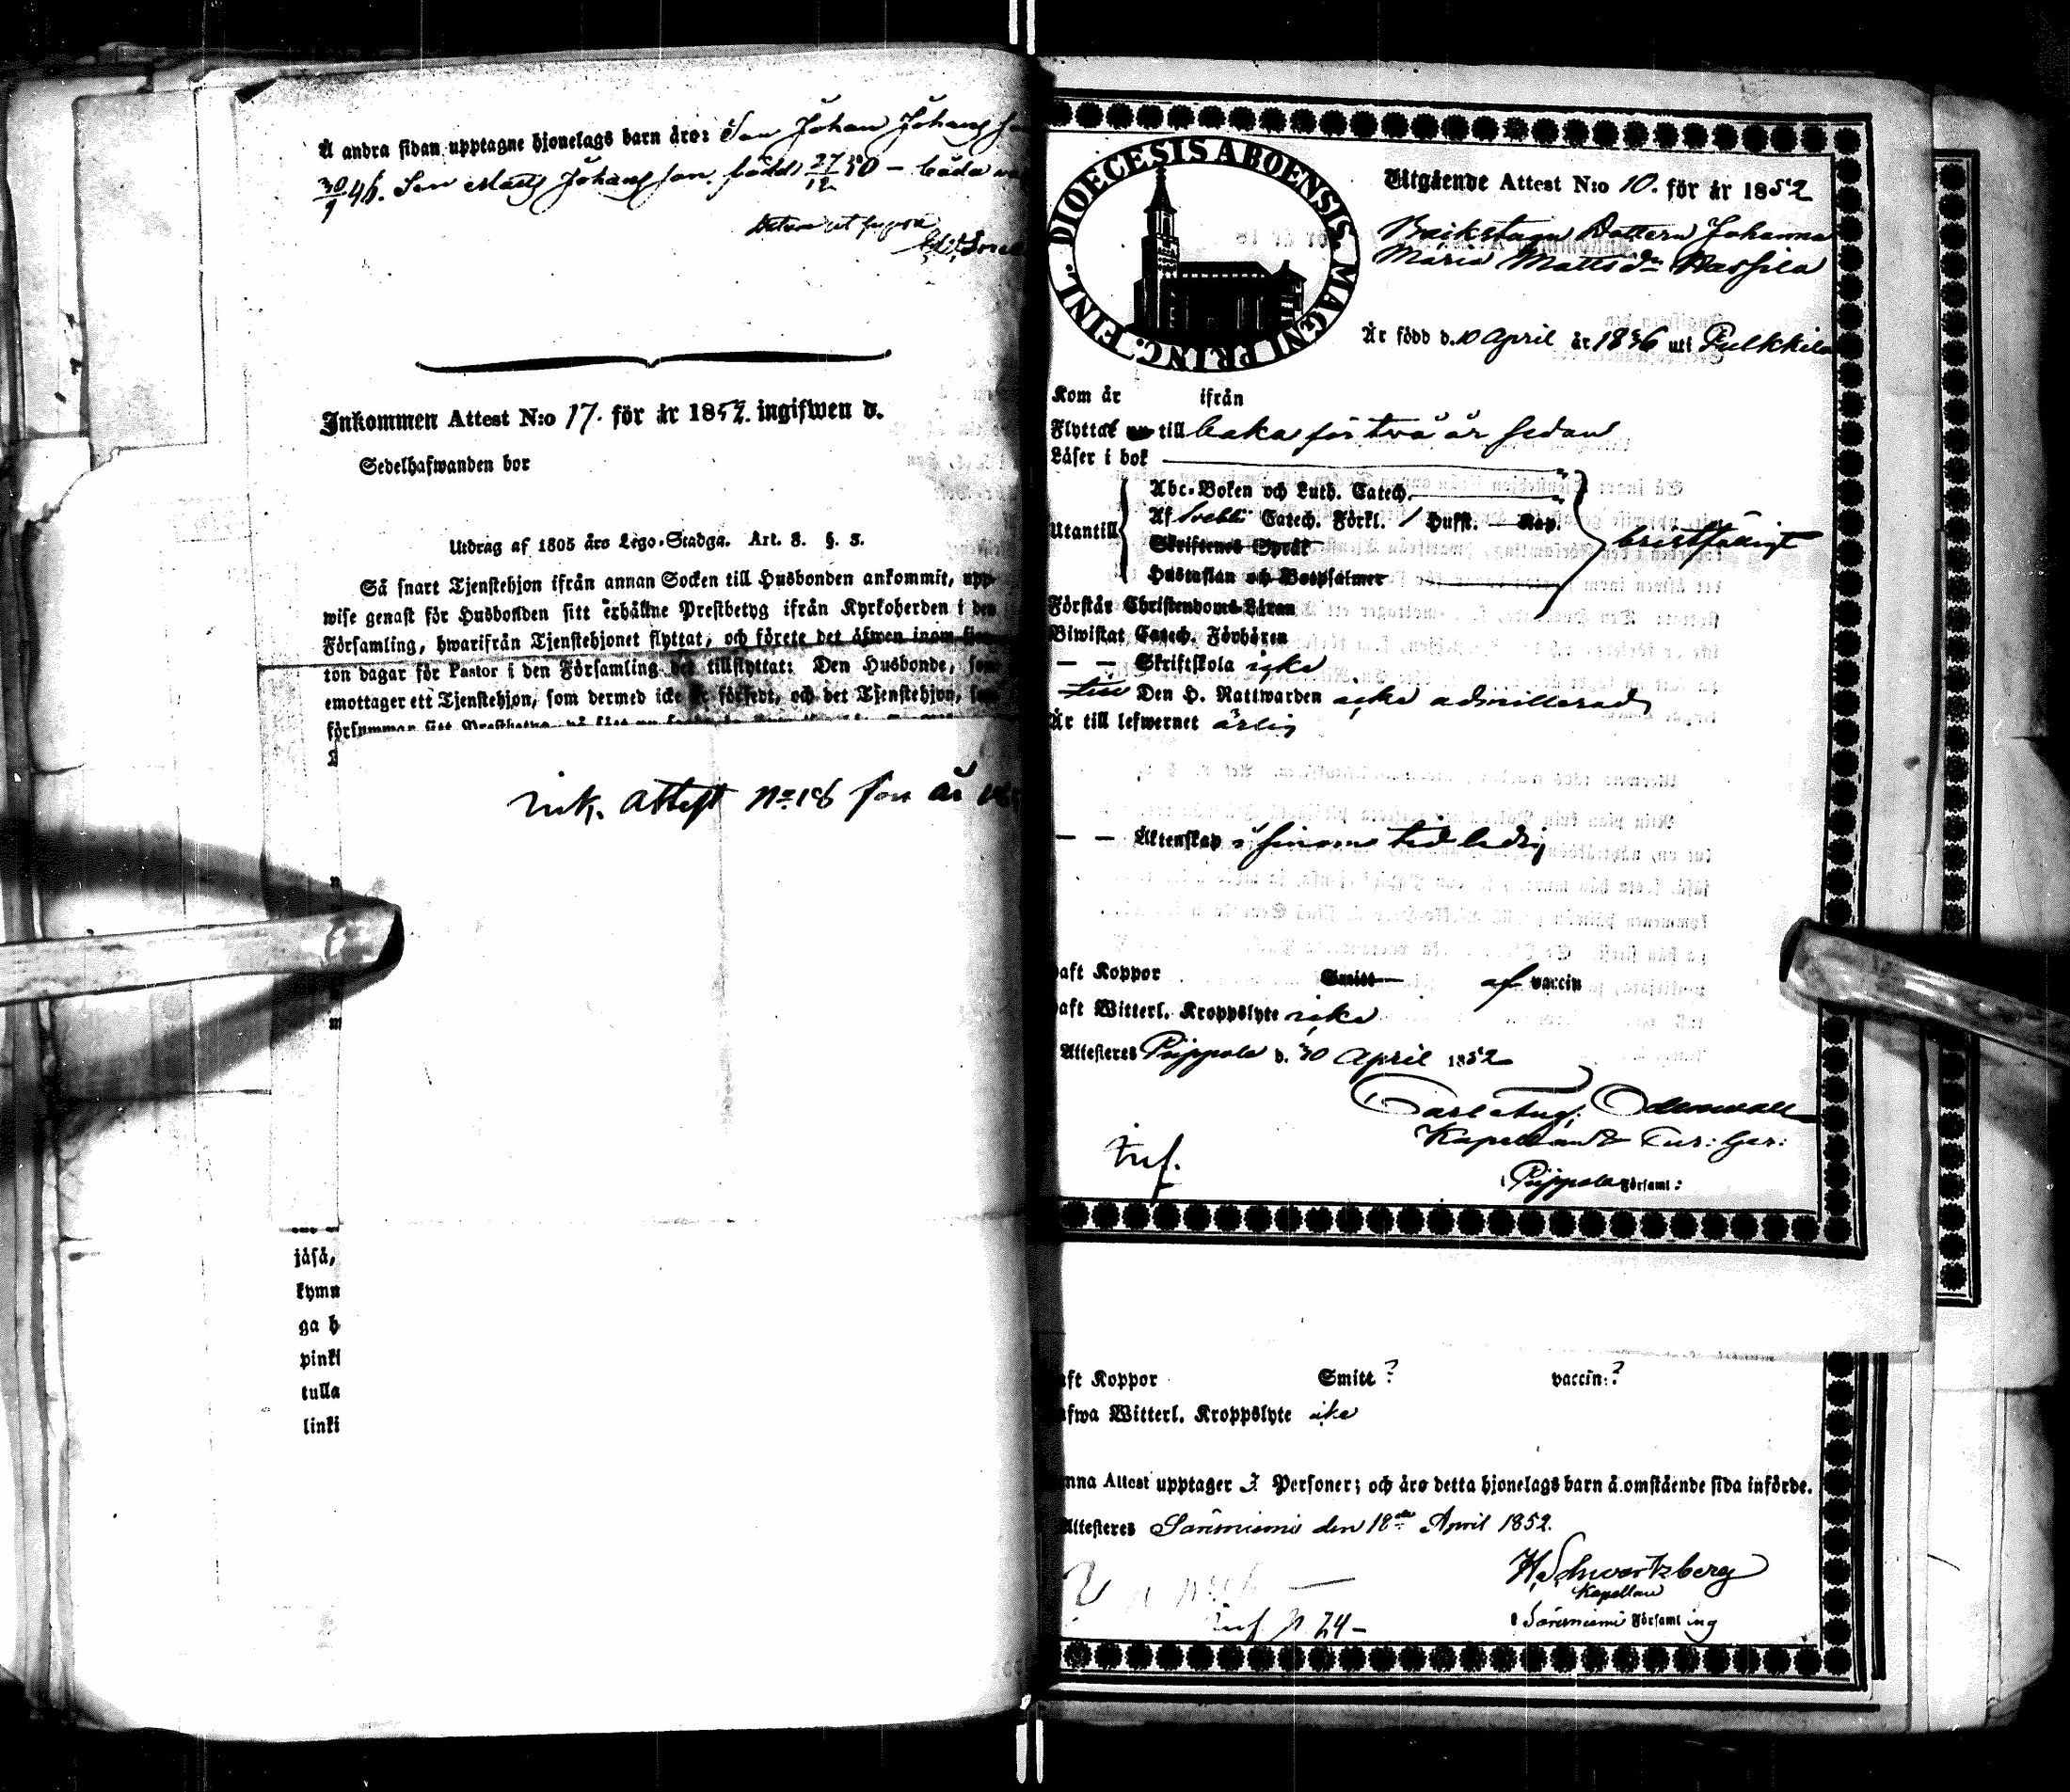 Å andra sidan upptagne hjonelags barn äro: Son Johan Johans son
30/9 46. Son Matts Johansson. född 27/12 50 – båda
Datum ut supra
Inkommen Attest N:o 17. för år 1852. ingifwen d.
Sedelhafwanden bor
Utdrag af 1805 års Lego-Stadga. Art. 3. §. 3.
Så snart Tjenstehjon ifrån annan Socken till Husbonden ankommit, upp-
wise genast för Husbonden sitt erhållne Prestbetyg ifrån Kyrkoherden i den
Församling, hwarifrån Tjenstehjonet flyttat, och förete det äfwen inom fjor-
ton dagar för Pastor i den Församling det tillflyttat: Den Husbonde, som
emottager ett Tjenstehjon, som dermed icke är försedt, och det Tjenstehjon, som
försummar sitt Prestbetyg
ink. Attest No 18 för år 18
jäsä,
kymn
ga h
pinki
tulla
linki
DIOECESIS ABOENSIS. MAGNI PRINC. FINL.
Utgående Attest N:o 10. för år 1852
Dottern Johanna
Maria Mattsdr
Är född d. 10 April år 1836 uti Pulkkila
Kom år ifrån
Flyttat till baka för två år sedan
Läser i bok
Abc-Boken och Luth. Catech.
Utantill
Af Svebili Catech. Förkl. / Hufst. — Kap.
Skriftenes Språk
Hustaflan och Botpsalmer
bristfälligt
Förstår Christendoms Läran
Biwistat Catech. Förhören
— — Skriftskola icke
Den H. Nattwarden icke admitterad
Är till lefwernet ärlig
— — Äktenskap i finom tid ledig
haft Koppor Smitt af vaccin
haft Witterl. Kroppslyte icke
Attesteres Piippola d. 30 April 1852
Carl Aug. Odenwall
Kapellan & Cur: Ger:
i Piippola Församl:
Inf.
aft Koppor Smitt ? vaccin: ?
afwa Witterl. Kroppslyte icke
enna Attest upptager 3 Personer; och äro detta hjonelags barn å omstående sida införde.
Attesteres Säräisniemi den 18de April 1852.
H. Schwartzberg
Kapellan
i Säräisniemi Församling
Inf N 24 –